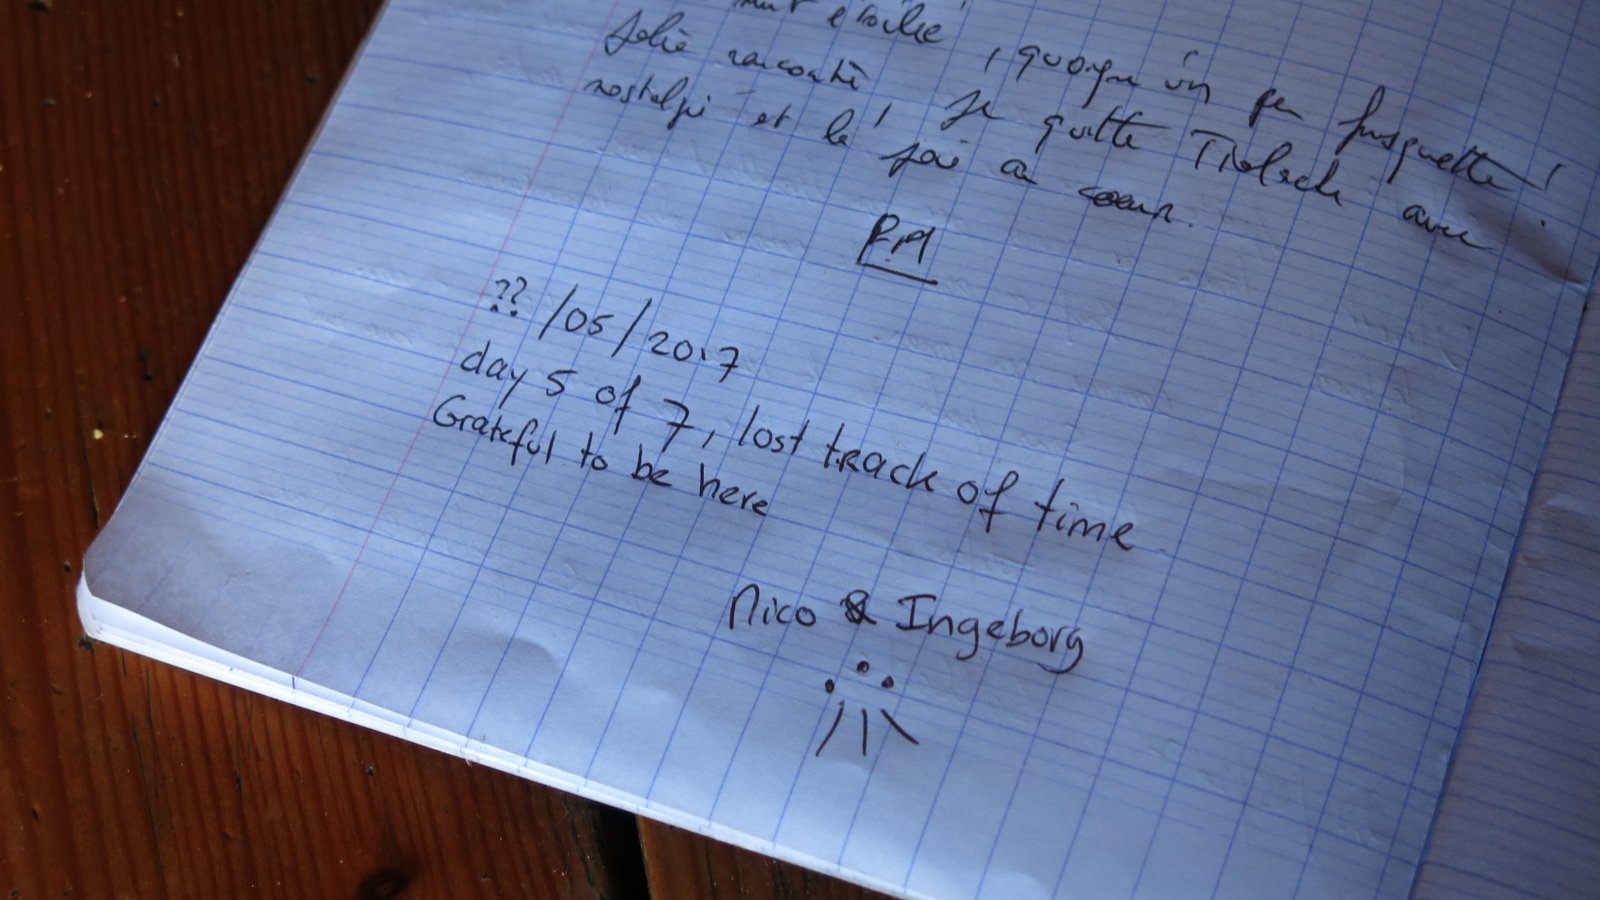 nuit étoilée, quoique un peu frisquette!
Jolie rencontre! Je quitte avec
nostalgie et la joie au coeur.
?? /05/2017
day 5 of 7, lost track of time
Grateful to be here
Nico & Ingeborg